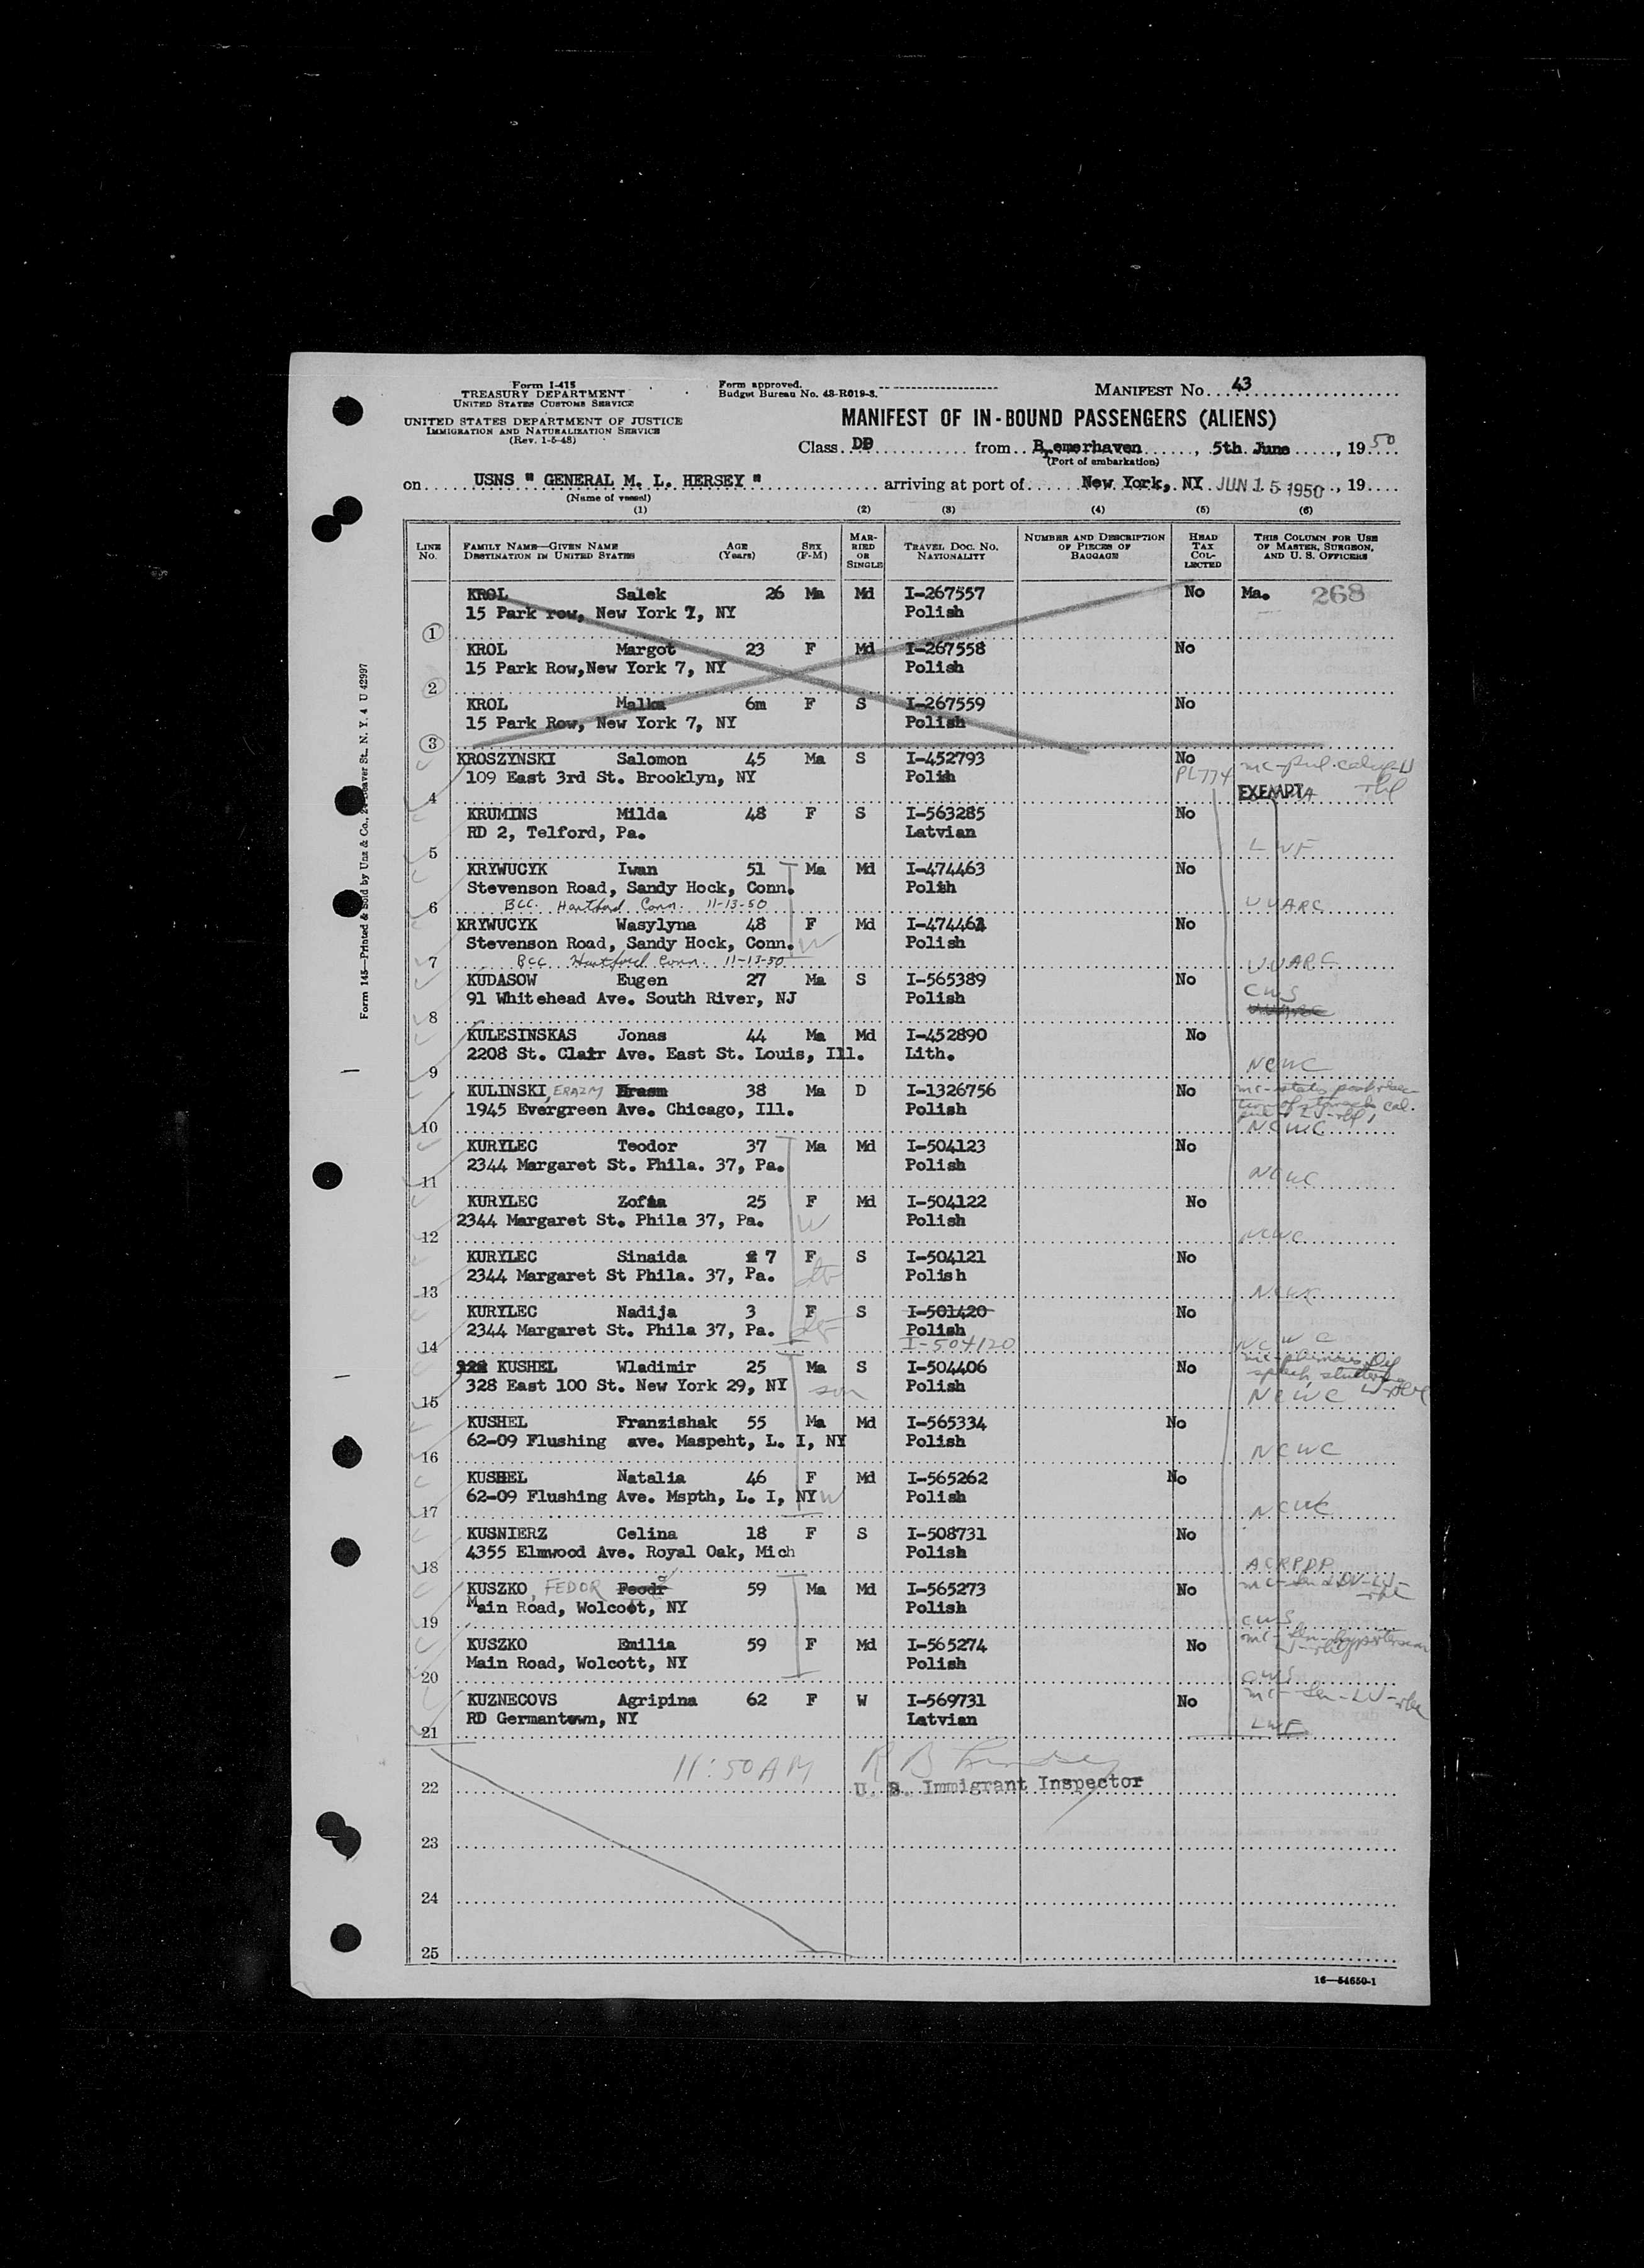 Form I-415
TREASURY DEPARTMENT
UNITED STATES CUSTOMS SERVICE
UNITED STATES DEPARTMENT OF JUSTICE
IMMIGRATION AND NATURALIZATION SERVICE
(Rev. 1-5-48)
Form approved.
Budget Bureau No. 43-R019-3.
MANIFEST No. 43
MANIFEST OF IN-BOUND PASSENGERS (ALIENS)
Class DP from Bremerhaven, 5th June, 1950
(Port of embarkation)
on USNS " GENERAL M. L. HERSEY " arriving at port of New York, NY JUN 15 1950, 19
(Name of vessel)
(1) (2) (3) (4) (5) (6)
LINE No. FAMILY NAME—GIVEN NAME DESTINATION IN UNITED STATES AGE (Years) SEX (F-M) MARRIED OR SINGLE TRAVEL DOC. NO. NATIONALITY NUMBER AND DESCRIPTION OF PIECES OF BAGGAGE HEAD TAX COLLECTED THIS COLUMN FOR USE OF MASTER, SURGEON, AND U. S. OFFICERS
KROL Salek 26 Ma Md I-267557 No Ma. 268
15 Park row, New York 7, NY Polish
1
KROL Margot 23 F Md I-267558 No
15 Park Row,New York 7, NY Polish
2
KROL Malka 6m F S I-267559 No
15 Park Row, New York 7, NY Polish
3
KROSZYNSKI Salomon 45 Ma S I-452793 No
109 East 3rd St. Brooklyn, NY Polih PL774
4 EXEMPT
KRUMINS Milda 48 F S I-563285 No
RD 2, Telford, Pa. Latvian
5 LWF
KRYWUCYK Iwan 51 Ma Md I-474463 No
Stevenson Road, Sandy Hock, Conn. Polih
6 BCC. Hartford Conn. 11-13-50 UUARC
KRYWUCYK Wasylyna 48 F Md I-474462 No
Stevenson Road, Sandy Hock, Conn. W Polish
7 BCC Hartford Conn. 11-13-50 UUARC
KUDASOW Eugen 27 Ma S I-565389 No
91 Whitehead Ave. South River, NJ Polish CWS
8
KULESINSKAS Jonas 44 Ma Md I-452890 No
2208 St. Clair Ave. East St. Louis, Ill. Lith.
9 NCWC
KULINSKI, ERAZM Erasm 38 Ma D I-1326756 No
1945 Evergreen Ave. Chicago, Ill. Polish
10 NCWC
KURYLEC Teodor 37 Ma Md I-504123 No
2344 Margaret St. Phila. 37, Pa. Polish
11 NCWC
KURYLEC Zofia 25 F Md I-504122 No
2344 Margaret St. Phila 37, Pa. W Polish
12 NCWC
KURYLEC Sinaida 7 F S I-504121 No
2344 Margaret St Phila. 37, Pa. Polish
13 NCWC
KURYLEC Nadija 3 F S I-501420 No
2344 Margaret St. Phila 37, Pa. Polish
14 I-504120 NCWC
KUSHEL Wladimir 25 Ma S I-504406 No
328 East 100 St. New York 29, NY son Polish
15 NCWC
KUSHEL Franzishak 55 Ma Md I-565334 No
62-09 Flushing ave. Maspeht, L. I, NY Polish
16 NCWC
KUSHEL Natalia 46 F Md I-565262 No
62-09 Flushing Ave. Mspth, L. I, NY W Polish
17 NCWC
KUSNIERZ Celina 18 F S I-508731 No
4355 Elmwood Ave. Royal Oak, Mich Polish
18 ACRPDP
KUSZKO, FEDOR Feodr 59 Ma Md I-565273 No
Main Road, Wolcott, NY Polish
19 CWS
KUSZKO Emilia 59 F Md I-565274 No
Main Road, Wolcott, NY Polish
20 CWS
KUZNECOVS Agripina 62 F W I-569731 No
RD Germantown, NY Latvian
21 LWF
11:50 AM
22 U. S. Immigrant Inspector
23
24
25
16—54650-1